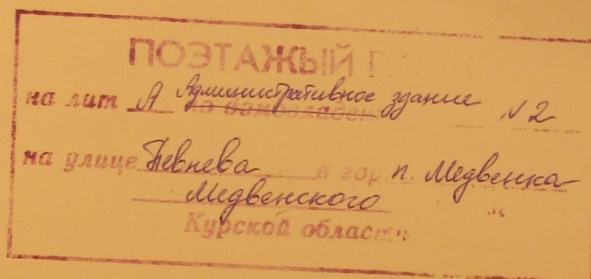 ПОЭТАЖЫЙ
на лит А Административное здание №2
на улице Певнева в гор п. Медвенка
Медвенского
Курской области